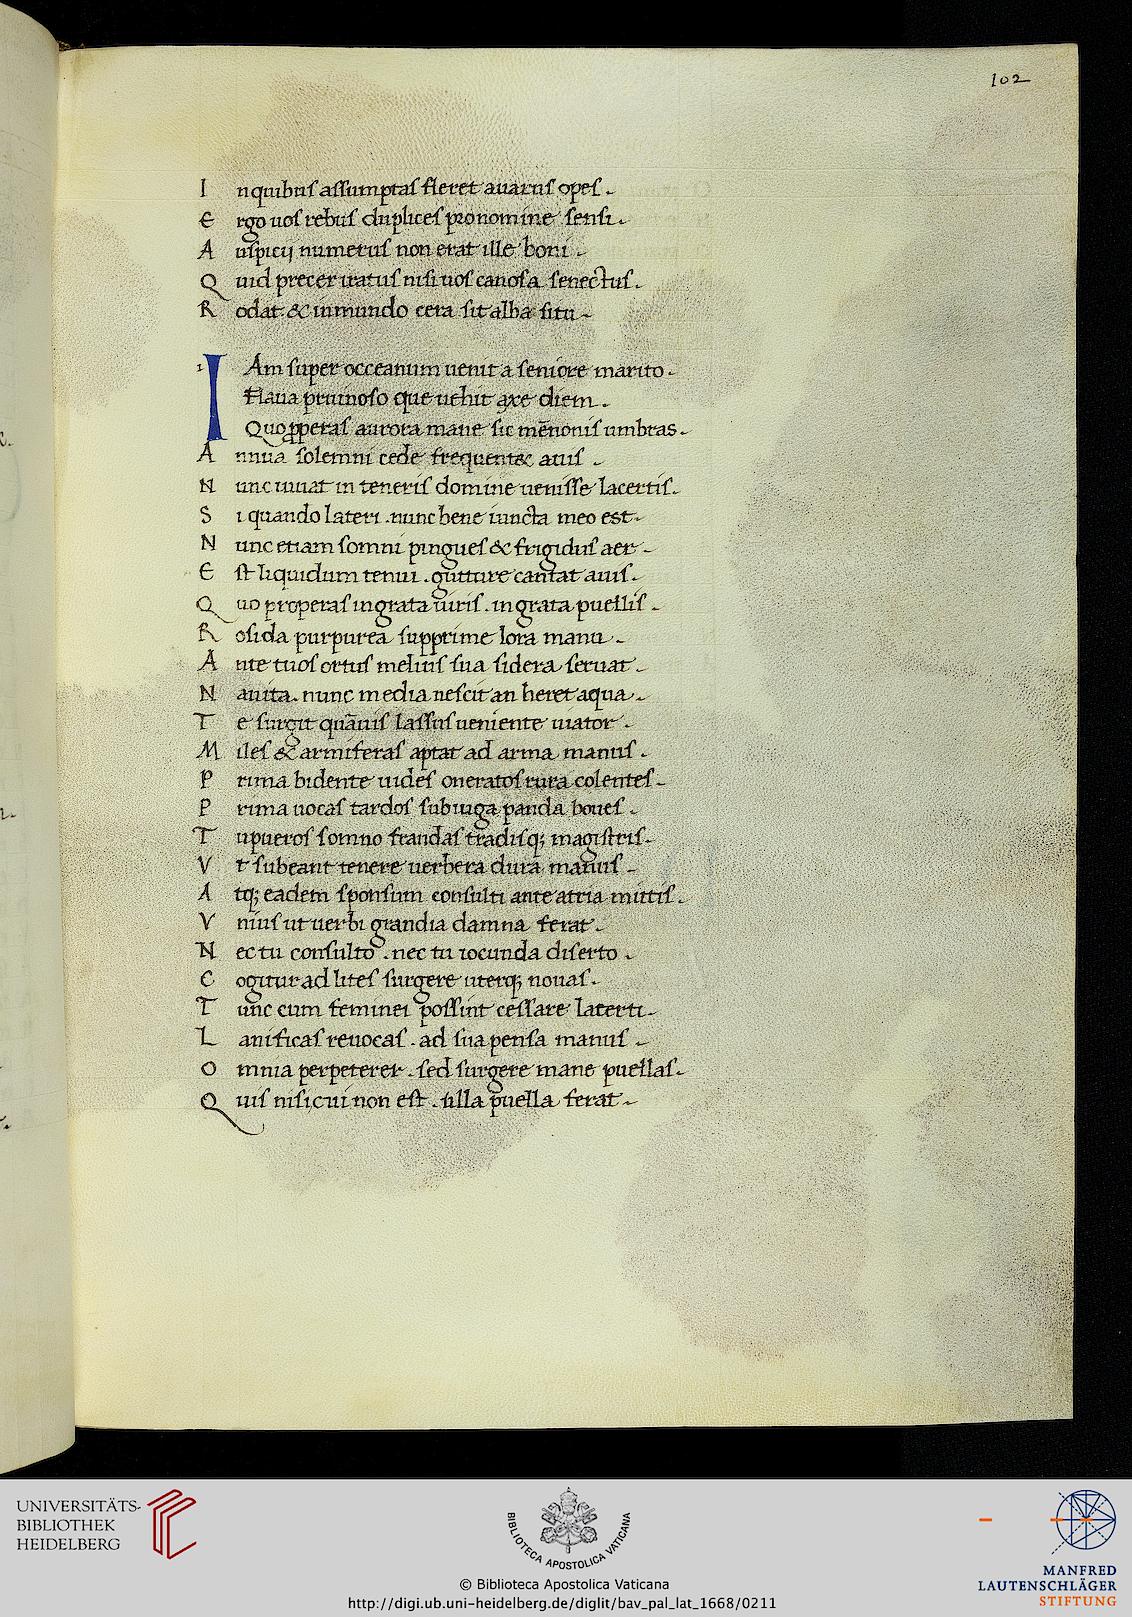 102
In quibus assumptas fleret auarus opes.
Ergo uos rebus duplices pro nomine sensi.
Auspicij numerus non erat ille boni.
Quid precer iratus nisi uos cariosa senectus.
Rodat. & inmundo cera sit alba situ.
IAm super occeanum uenit a seniore marito.
Flaua pruinoso que uehit axe diem.
Quo pperas aurora mane sic mēnonis umbras.
Annua solemni cede frequentet auis.
Nunc iuuat in teneris domine uenisse lacertis.
Si quando lateri. nunc bene iuncta meo est.
Nunc etiam somni pingues & frigidus aer.
Est liquidum tenui. gutture cantat auis.
Quo properas ingrata uiris. ingrata puellis.
Rosida purpurea supprime lora manu.
Ante tuos ortus melius sua sidera seruat.
Nauita. nunc media nescit an heret aqua.
Te surgit quāuis lassus ueniente uiator.
Miles & armiferas aptat ad arma manus.
Prima bidente uides oneratos rura colentes.
Prima uocas tardos sub iuga panda boues.
Tu pueros somno fraudas tradisq; magistris.
Vt subeant tenere uerbera dura manus.
Atq; eadem sponsum consulti ante atria mittis.
Vnius ut uerbi grandia damna ferat.
Nec tu consulto. nec tu iocunda diserto.
Cogitur ad lites surgere uterq; nouas.
Tunc cum feminei possint cessare lacerti.
Lanificas reuocas. ad sua pensa manus.
Omnia perpeterer. sed surgere mane puellas.
Quis nisi cui non est. ulla puella ferat.
UNIVERSITÄTS-
BIBLIOTHEK
HEIDELBERG
BIBLIOTECA APOSTOLICA VATICANA
© Biblioteca Apostolica Vaticana
http://digi.ub.uni-heidelberg.de/diglit/bav_pal_lat_1668/0211
MANFRED
LAUTENSCHLÄGER
STIFTUNG